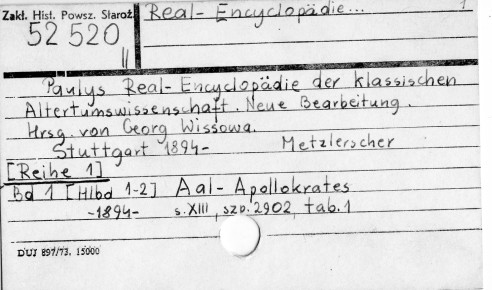 Zakł. Hist. Powsz. Staroż.
Real-Encyclopädie... 1
52 520
II
Paulys Real-Encyclopädie der klassischen
Altertumswissenschaft. Neue Bearbeitung.
Hrsg. von Georg Wissowa.
Stuttgart 1894- Metzlerscher
[Reihe 1]
Bd 1 [Hlbd 1-2] Aal-Apollokrates
-1894- s. XIII, szp. 2902, tab. 1
DUJ 897/73. 15000